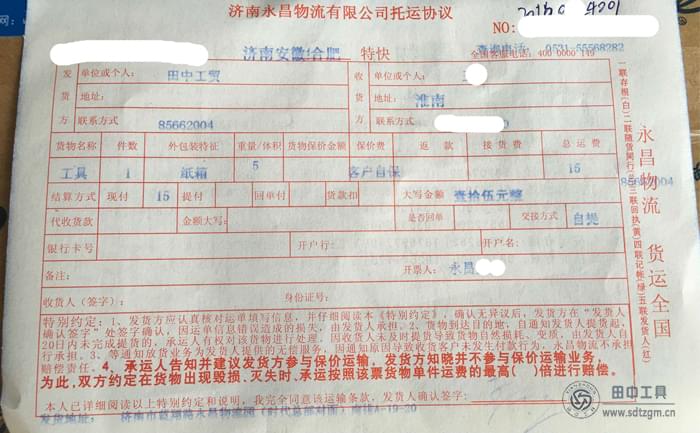 济南永昌物流有限公司托运协议
NO:
济南安徽合肥 特快
查询电话: 0531-55568282
全国客服电话: 400 0000 149
发货方 单位或个人: 田中工贸
收货方 单位或个人:
地址:
地址: 淮南
联系方式 85662004
联系方式:
货物名称 件数 外包装特征 重量/体积 货物保价金额 保价费 返款 接货费 总运费
工具 1 纸箱 5 客户自保 15
结算方式 现付 15 提付 回单付 货款扣 大写金额 壹拾伍元整
代收货款 金额大写: 是否回单 交接方式 自提
银行卡号 开户行: 开户名:
备注: 开票人: 永昌
收货人(签字): 身份证号:
特别约定:1、发货方应认真核对运单填写信息,并仔细阅读本《特别约定》,确认无异议后,发货方在“发货人
确认签字”处签字确认,因运单信息错误造成的损失,由发货方承担。2、货物到达目的地,自通知发货人提货起,
20日内未完成提货的,承运人有权对该货物进行处理。因收货人未及时提货导致货物自然损耗、变质,由发货人自
行承担。3、等通知放货业务为发货人提供的无偿服务,因通知原因导致收货客户未发生付款行为,永昌物流不承担
赔偿责任。4、承运人告知并建议发货方参与保价运输,发货方知晓并不参与保价运输业务,
为此,双方约定在货物出现毁损、灭失时,承运按照该票货物单件运费的最高( )倍进行赔偿。
本人已详细阅读以上特别约定和说明,我完全同意该运输条款,发货人确认签字:
发货地址: 济南市
一联存根(白)二联随货同行 三联回执(黄)四联记帐(绿)五联发货人(红)
永昌物流 货运全国
田中工具
www.sdtzgm.cn